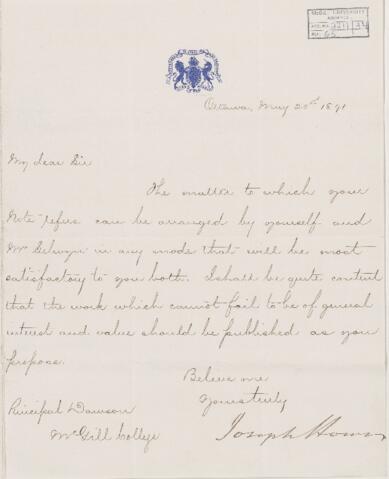 McGILL UNIVERSITY
ARCHIVES
ACC. NO.
REF.
Ottawa, May 20th 1871
My dear Sir
The matter to which your
Note refers can be arranged by yourself and
Mr Selwyn in any mode that will be most
satisfactory to you both. I shall be quite content
that the work which cannot fail to be of general
interest and value should be published as you
propose.
Believe me
Yours truly
Joseph Howe
Principal Dawson
McGill College